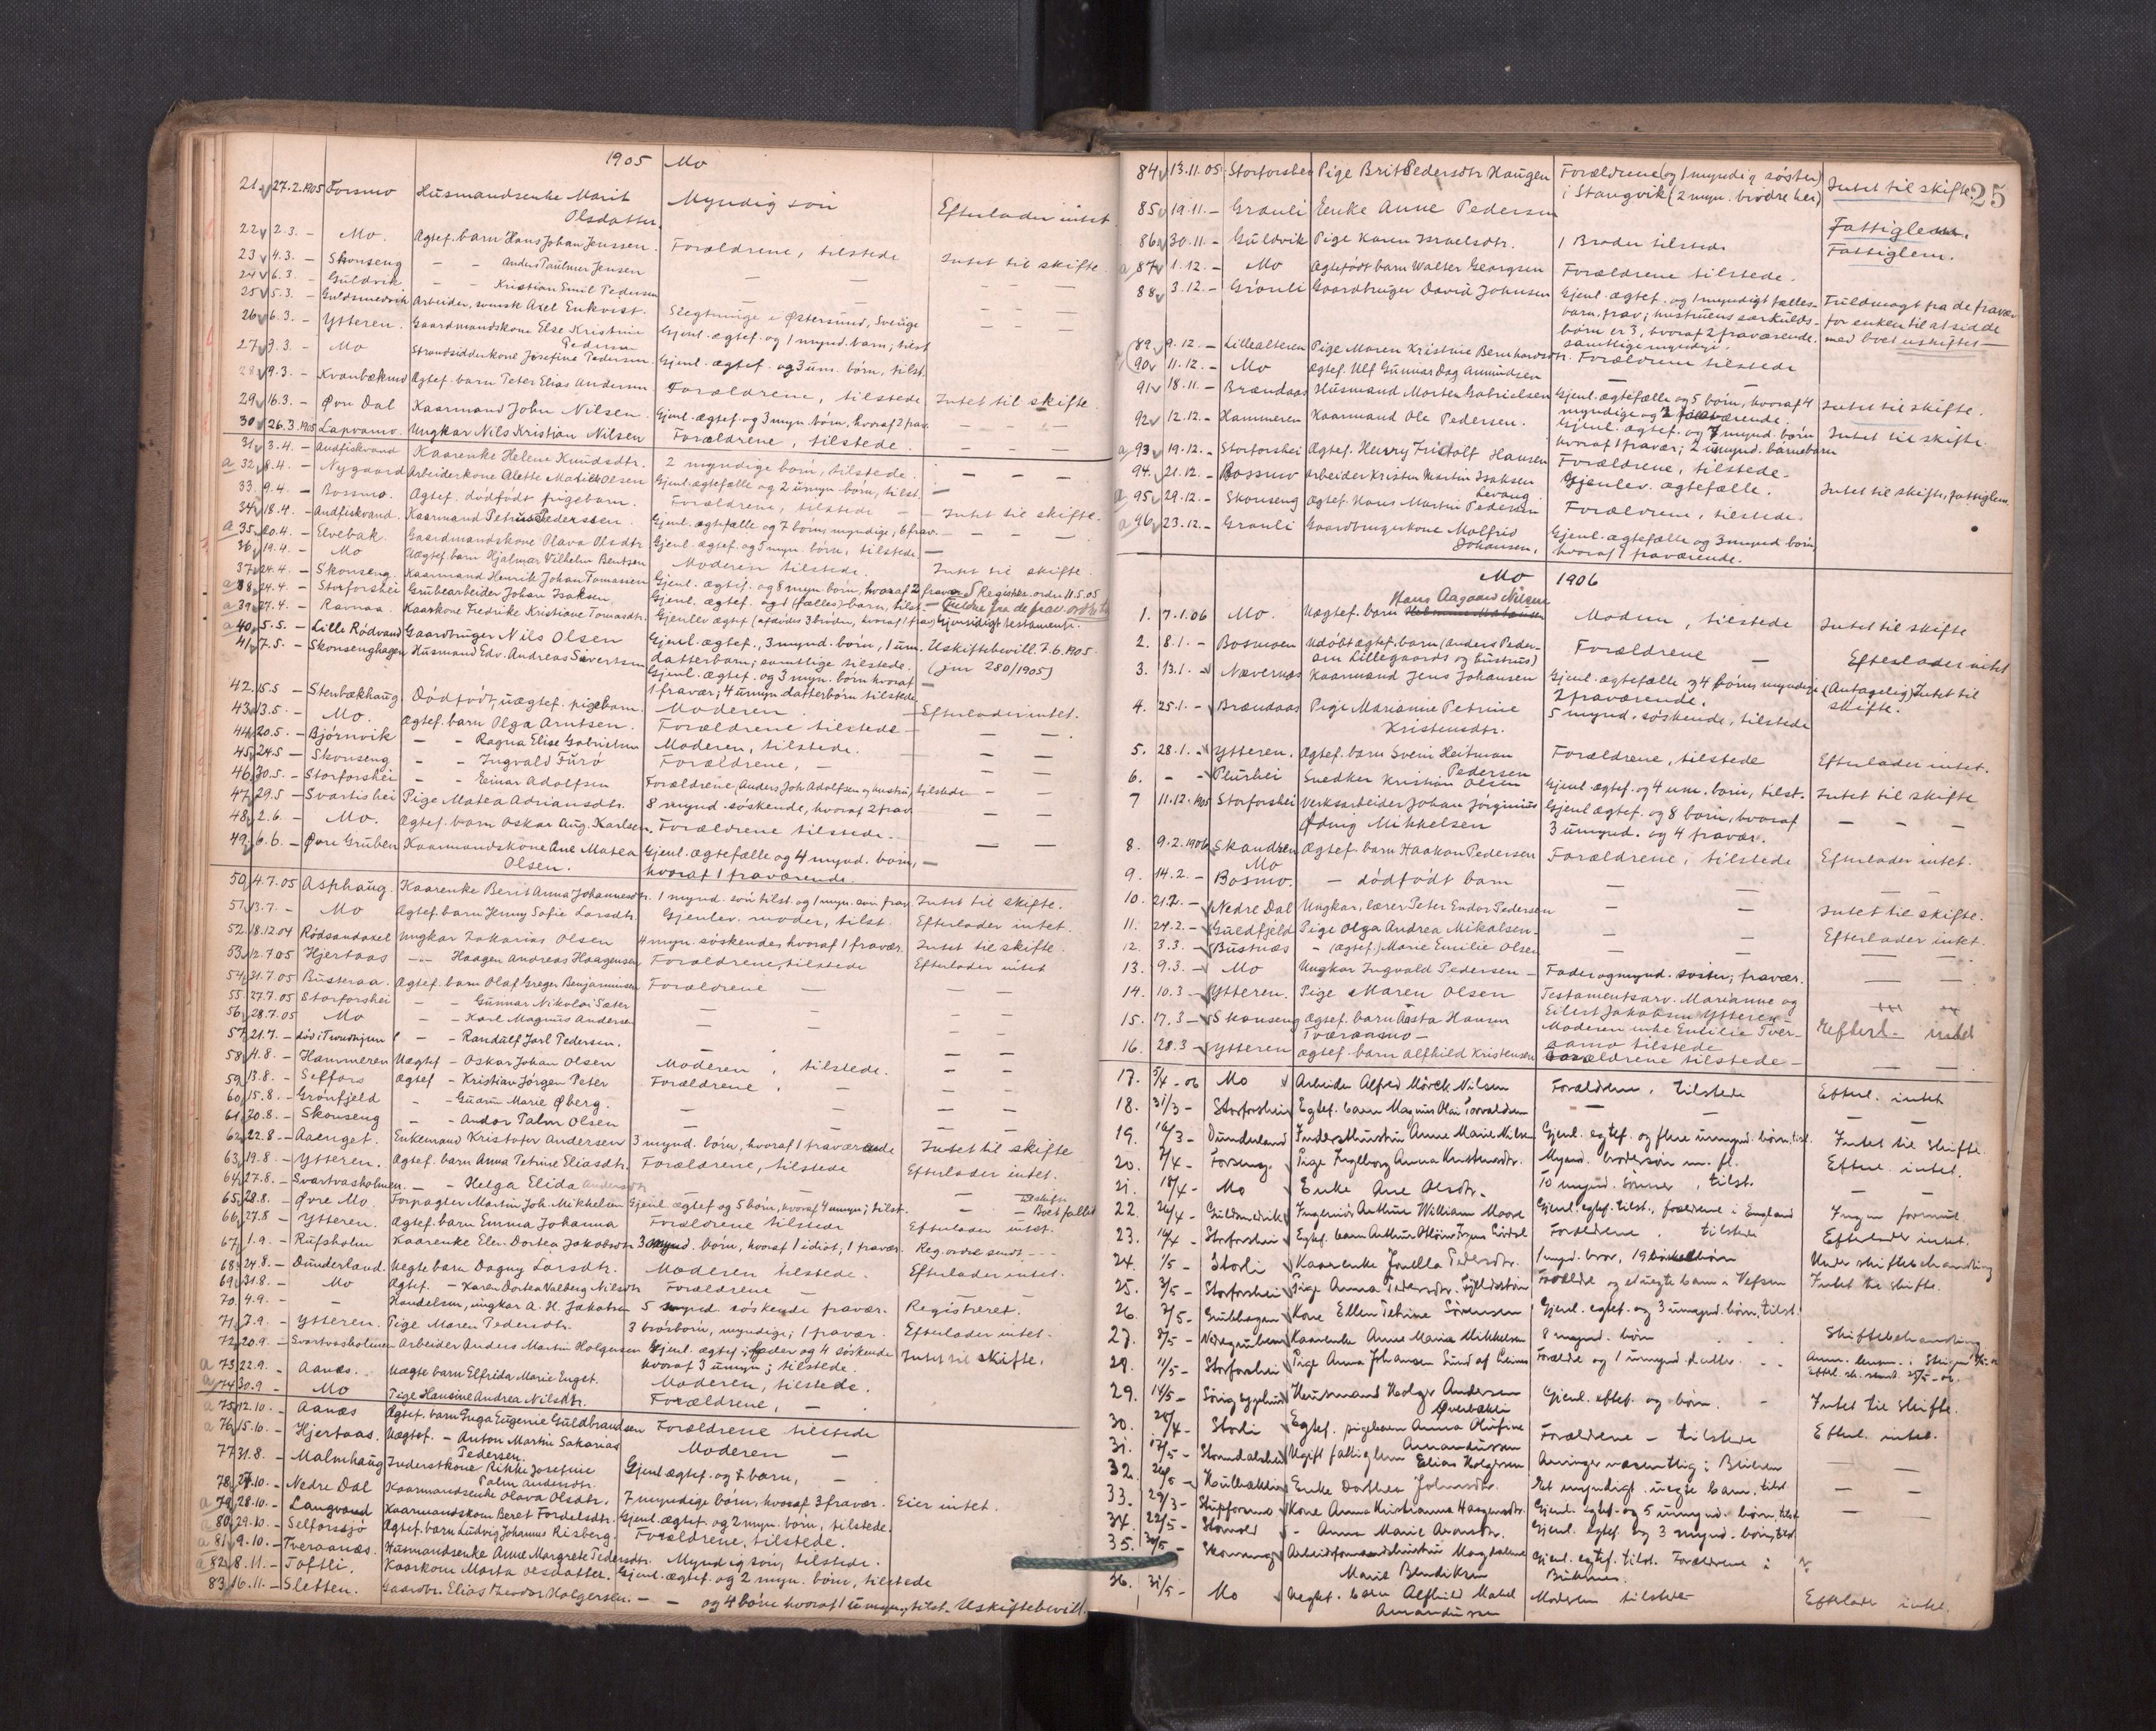 1905 Mo
21. 27.2.1905 Forsmo Husmandsenke Marit Myndig søn Efterlader intet
Olsdatter.
22 2.3. – Mo. Ægtef. barn Hans Johan Jenssen. Forældrene, tilstede Intet til skifte.
23 4.3. – Skonseng – – Anders Paulmer Jensen — — – – –
24 6.3. – Guldvik – – Kristian Emil Pedersen — — – – –
25 5.3. – Guldsmedvik Arbeider, svensk Axel Enkvist. Slegtninge i Østersund, Sverige – – –
26 6.3. – Ytteren. Gaardmandskone Else Kristine Gjenl. ægtef. og 1 mynd. barn; tilst. – – –
Pedersen
27 9.3. – Mo Strandsidderkone Josefine Pedersen. Gjenl. ægtef. og 3 um. børn, tilst. – – –
28 9.3. – Ægtef. barn Peter Elias Andersen Forældrene, tilstede Intet til skifte.
29 16.3. – Øvre Dal Kaarmand John Nilsen. Gjenl. ægtef. og 3 myn. børn, hvoraf 2 frav. – – –
30 26.3.1905 Lapvamo. Ungkar Nils Kristian Nilsen Forældrene, tilstede – – –
31 3.4. – Andfiskvand Kaarenke Helene Knudsdtr. 2 myndige børn, tilstede. – – –
a 32 8.4. – Nygaard Arbeiderkone Alette Matilde Olsen Gjenl. ægtefælle og 2 umyn. børn, tilst. —
33. 9.4. – Bossmo. Ægtef. dødfødt pigebarn. Forældrene, tilstede – – Intet til skifte.
34 18.4. – Andfiskvand. Kaarmand Petrus Pederssen. Gjenl. ægtefælle og 7 børn, myndige, 6 frav. – – –
a 35. 20.4. – Elvebak. Gaardmandskone Olava Olsdtr. Gjenl. ægtef. og 5 myn. børn, tilstede —
36 19.4. – Mo Uægtef. barn Hjalmar Vilhelm Bentsen Moderen tilstede. Intet til skifte.
37 24.4. – Skonseng. Kaarmand Henrik Johan Tomassen Gjenl. ægtef. og 8 myn. børn, hvoraf 2 frav. Register. ordre 11.5.05
a 38 24.4. – Storforshei Grubearbeider Johan Isaksen Gjenl. ægtef. og 1 (fælles) barn, tilst. —
a 39 27.4. – Ravnaa. Kaarkone Fredrike Kristiane Tomasdtr. Gjenlev ægtef. (afdødes 3 brødre, hvoraf 1 frav) Gjensidigt testamente.
a 40 5.5. – Lille Rødvand Gaardbruger Nils Olsen Gjenl. ægtef., 3 mynd. børn, 1 um. Uskiftebevill. 7.6.1905.
datterbarn; samtlige tilstede. (jnr 280/1905)
41 7.5. – Skonsenghagen Husmand Edv. Andreas Sivertsen Gjenl. ægtef. og 3 myn. børn hvoraf
1 fravær; 4 umyn datterbørn tilstede —
42. 15.5 – Stenbækhaug. Dødfødt, uægtef. pigebarn. Moderen Efterlader intet.
43 13.5. – Mo. Ægtef. barn Olga Arntsen. Forældrene tilstede – – –
44 20.5. – Bjørnvik – – Ragna Elise Gabrielsen Moderen, tilstede. – –
45 24.5 – Skonseng – – Ingvald Furø Forældrene, – – –
46 30.5. – Storforshei – – Einar Adolfsen Forældrene (Anders Joh Adolfsen og hustru), tilstede – –
47 29.5 – Svartishei Pige Matea Adriansdtr. 8 mynd. søskende, hvoraf 2 frav. – –
48 2.6. – Mo. Ægtef. barn Oskar Aug. Karlsen, Forældrene tilstede. – –
49 6.6. – Øvre Gruben Kaarmandskone Ane Matea Gjenl. ægtefælle og 4 mynd. børn, —
Olsen. hvoraf 1 fraværende.
50 4.7.05 Asphaug. Kaarenke Berit Anna Johannesdtr. 1 mynd. søn tilst. og 1 myn. søn frav. Intet til skifte.
51 3.7. – Mo Ægtef. barn Jenny Sofie Larsdtr. Gjenlev. moder, tilst. Efterlader intet.
52 18.12.04 Rødsandaxel Ungkar Zakarias Olsen 4 myn. søskende, hvoraf 1 fravær. Intet til skifte.
53 12.7.05 Hjertaas –– Haagen Andreas Haagensen Forældrene, tilstede Efterlader intet
54 31.7.05 Busteraa. Ægtef. barn Olaf Greger Benjaminsen Forældrene – – –
55. 27.7.05 Storforshei – – Gunnar Nikolai Sæter – – – –
56 28.7.05 Mo – – Karl Magnus Andersen – – – –
57 21.7. – død i Trondhjem – Randulf Jarl Pedersen. – – – –
58 4.8. – Hammeren Uægtef – Oskar Johan Olsen Moderen, tilstede. – –
59 13.8. – Selfors Ægtef – Kristian Jørgen Peter Forældrene, – – –
60 15.8. – Grønfjeld – – Gudrun Marie Øberg. – – – –
61 20.8. – Skonseng – – Andor Palm Olsen – – – –
62 22.8. – Aaenget. Enkemand Kristofer Andersen 3 mynd. børn, hvoraf 1 fraværende Intet til skifte
63 19.8. – Ytteren. Ægtef. barn Anna Petrine Eliasdtr. Forældrene, tilstede Efterlader intet.
64 27.8. – Svartvasholmen. – – Helga Elida Andersdtr – – – –
65 28.8. – Øvre Mo. Forpagter Martin Joh. Mikkelsen Gjenl. ægtef og 5 børn, hvoraf 4 umyn; tilst. – – Boet fallit
66 27.8 – Ytteren. Ægtef. barn Emma Johanna Forældrene tilstede Efterlader intet.
67 1.9. – Rufsholm Kaarenke Elen Dortea Jakobsdtr 3 mynd. børn, hvoraf 1 idiot, 1 fravær. Reg. ordre sendt – –
68 24.8. – Dunderland. Uegte barn Dagny Larsdtr. Moderen tilstede. Efterlader intet.
69 31.8. – Mo Ægtef. – Karen Dortea Valberg Nilsdtr Forældrene –
70. 4.9. – – Handelsm, ungkar A. H. Jakobsen 5 mynd. søskende fravær. Registreret.
71 7.9. – Ytteren. Pige Maren Pedersdtr. 3 brorsbørn, myndige; 1 fravær. Efterlader intet.
72 20.9. – Svartvasholmen Arbeider Anders Martin Holgersen Gjenl. ægtef; fader og 4 søskende Intet til skifte.
hvoraf 3 umyn; tilstede.
a 73 22.9. – Aanæs. Uægte barn Elfrida Marie Enget. Moderen, tilstede.
a 74 30.9 – Mo Pige Hansine Andrea Nilsdtr. Forældrene, –
a 75 12.10. – Aanæs Ægtef. barn Inga Eugenie Guldbrandsen Forældrene tilstede
a 76 15.10. – Hjertaas. Uægtef. – Anton Martin Sakarias Moderen –
Pedersen.
77 31.8. – Malmhaug Inderstkone Rikke Josefine Gjenl ægtef. og 7 barn, –
Palm Andersdtr.
78 27.10. – Nedre Dal Kaarmandsenke Olava Olsdtr. 7 myndige børn, hvoraf 3 fravær. Eier intet.
a 79 28.10. – Langvand Kaarmandskone Beret Fordelsdtr. Gjenl. ægtef. og 2 myn. børn, tilstede.
a 80 29.10. – Selforssjø Ægtef. barn Ludvig Johannes Risberg. Forældrene, tilstede.
a 81 9.10. – Tveraanæs. Husmandsenke Anne Margrete Pedersdtr. Myndig søn, tilstede.
a 82 8.11. – Toftli. Kaarkone Marta Olsdatter. Gjenl. ægtef. og 2 myn. børn, tilstede
83 16.11. – Sletten. Gaardbr. Elias Theodor Holgersen. – – og 4 børn hvoraf 1 umyn, tilst. Uskiftebevill.
25
84 13.11.05 Storforshei Pige Brit Pedersdtr Haugen Forældrene (og 1 myndig søster) Intet til skifte.
i Stangvik (2 myn. brødre her)
85 19.11. – Grønli Enke Anne Pedersen Fattiglem.
86 30.11. – Guldvik Pige Karen Israelsdtr. 1 Broder tilstede Fattiglem.
a 87 1.12. – Mo Ægtefødt barn Walter Georgsen Forældrene tilstede.
88 3.12. – Grønli Gaardbruger David Johnsen Gjenl. ægtef. og 1 myndigt fælles- Fuldmagt fra de fravær.
barn, frav; hustruens særkulds- for enken til at sidde
børn er 3, hvoraf 2 fraværende. med boet uskiftet
samtlige myndige.
89 9.12. – Lillealteren Pige Maren Kristine Bernhardsdtr. Forældrene tilstede
90 11.12. – Mo Ægtef. Ulf Gunnar Dag Amundsen — —
91 18.11. – Brændaas Husmand Morten Gabrielsen Gjenl. ægtefælle og 5 børn, hvoraf 4 Intet til skifte.
myndige og 2 fraværende.
92 12.12. – Hammeren Kaarmand Ole Pedersen. Gjenl. ægtef. og 7 mynd. børn Intet til skifte.
hvoraf 1 fravær; 2 umynd. barnebørn
a 93 19.12. – Storforshei Ægtef. Henry Fridtolf Hansen Forældrene, tilstede.
94. 21.12. – Bossmo Arbeider Kristen Martin Isaksen Gjenlev. ægtefælle. Intet til skifte, fattiglem.
Levang.
a 95 29.12. – Skonseng Ægtef. Hans Martin Pedersen Forældrene, tilstede.
a 96 23.12. – Grønli Gaardbrugerkone Malfrid Gjenl. ægtefælle og 3 mynd børn,
Johansen. hvoraf 1 fraværende.
Mo 1906
Hans Aagaard Nilsen
1. 7.1.06 Mo. Uægtef. barn Moderen, tilstede Intet til skifte
2. 8.1. – Bosmoen Udøbt ægtef. barn (Anders Peder- Forældrene – Efterlader intet
sen Lillegaards og hustrus)
3. 13.1. – Nævernes Kaarmand Jens Johansen Gjenl. ægtefælle og 4 børn, myndige (Antagelig) Intet til
2 fraværende. skifte.
4. 25.1. – Brændaas Pige Marianne Petrine 5 mynd. søskende, tilstede
Kristensdtr.
5. 28.1. – Ytteren. Ægtef. barn Svein Heitman Forældrene, tilstede Efterlader intet.
Pedersen
6. – – Plurhei Snedker Kristian Olsen Gjenl. ægtef. og 4 um. børn, tilst. Intet til skifte
7 11.12.1905 Storforshei Verksarbeider Johan Jørginius Gjenl ægtef. og 8 børn, hvoraf – – –
Øding Mikkelsen 3 umynd. og 4 fravær.
8. 9.2.1906 Ægtef. barn Haakon Pedersen Forældrene, tilstede Efterlader intet.
Mo
9. 14.2. – Bosmo. – dødfødt barn — — – –
10. 21.2. – Nedre Dal Ungkar, lærer Peter Endor Pedersen — — Intet til skifte.
11. 24.2. – Guldfjeld Pige Olga Andrea Mikalsen – — — Efterlader intet.
12. 3.3. – Bustnæs – (ægtef.) Marie Emilie Olsen — — – –
13. 9.3. – Mo Ungkar Ingvald Pedersen – Fader og mynd. søster; fravær. – –
14. 10.3 – Ytteren. Pige Maren Olsen Testamentsarv. Marianne og
Eilert Jakobsen Ytteren
15. 17.3 – Skonseng Ægtef. barn Aasta Hansen Moderen enke Emilie Tver- Efterl. intet
Tværaamo – aamo tilstede
16. 28.3 – Ytteren Ægtef. barn Alfhild Kristensen Forældrene tilstede – – –
17. 5/4 – 06 Mo Arbeider Alfred Mørck Nilsen Forældrene, tilstede Efterl. intet
18. 31/3 – Storforshei Egtef. barn Magnus Olai Torvaldsen — — —
19. 16/3 – Dunderland Indersthustru Anne Marie Nilsen Gjenl. egtef. og flere umynd. børn, tilst. Intet til skifte.
20. 7/4 – Forseng. Pige Ingeborg Anna Kristensdtr. Mynd. brodersøn m. fl. Efterl. intet.
21. 18/4 – Mo Enke Ane Olsdtr. 10 mynd. sønner, tilst. —
22. 26/4 – Guldsmedvik Ingeniør Arthur William Moore Gjenl. egtef. tilst., forældrene i England Ingen formue.
23. 16/4 – Storforshei Egtef. barn Arthur Forældrene, tilstede Efterlader intet.
24. 1/5 – Storli Kaarenke Jonella Pedersdtr. 1 mynd. bror, 19 Under skiftebehandling
25. 3/5 – Storforshei Pige Anna Pedersdtr. Forældre og et uegte barn i Vefsen Intet til skifte.
26. 7/5 – Grubhagen Kone Ellen Petrine Sørensen Gjenl. egtef. og 3 umynd. børn, tilst.
27. 8/5 – Nedregruben Kaarenke Anne Maria Mikkelsen 8 mynd. børn Skiftebehandling
28. 11/5 – Storforshei Pige Anna Johansen Forældre og 1 umynd. datter.
29. 14/5 – Husmand Holger Andersen Gjenl. egtef. og børn. – Intet til skifte.
Øverbækli
30. 28/4 – Storli Egtef. pigebarn Anna Olufine Forældrene – tilstede Efterl. intet.
Amandussen
31. 17/5 – Stormdalshei Ugift fattiglem Elias Holgersen – –
32. 26/5 – Enke Dorthea Johnsdtr. Et myndigt uegte barn, tilst. – –
33. 29/3 – Stupformo Kone Anna Kristianna Haagensdtr. Gjenl. egtef. og 5 umynd. børn, tilst. – –
34. 22/5 – Storvold – Anna Marie Aronsdtr. Gjenl. egtef. og 3 mynd. børn, tilst.
35. 30/5 – Skonseng Arbeidsformandshustru Magdalene Gjenl. egtef. tilst. Forældrene i
Marie Bendiksen
36. 31/5 – Mo Uegt. barn Alfhild Matel Moderen tilstede Efterlader intet.
Amandussen